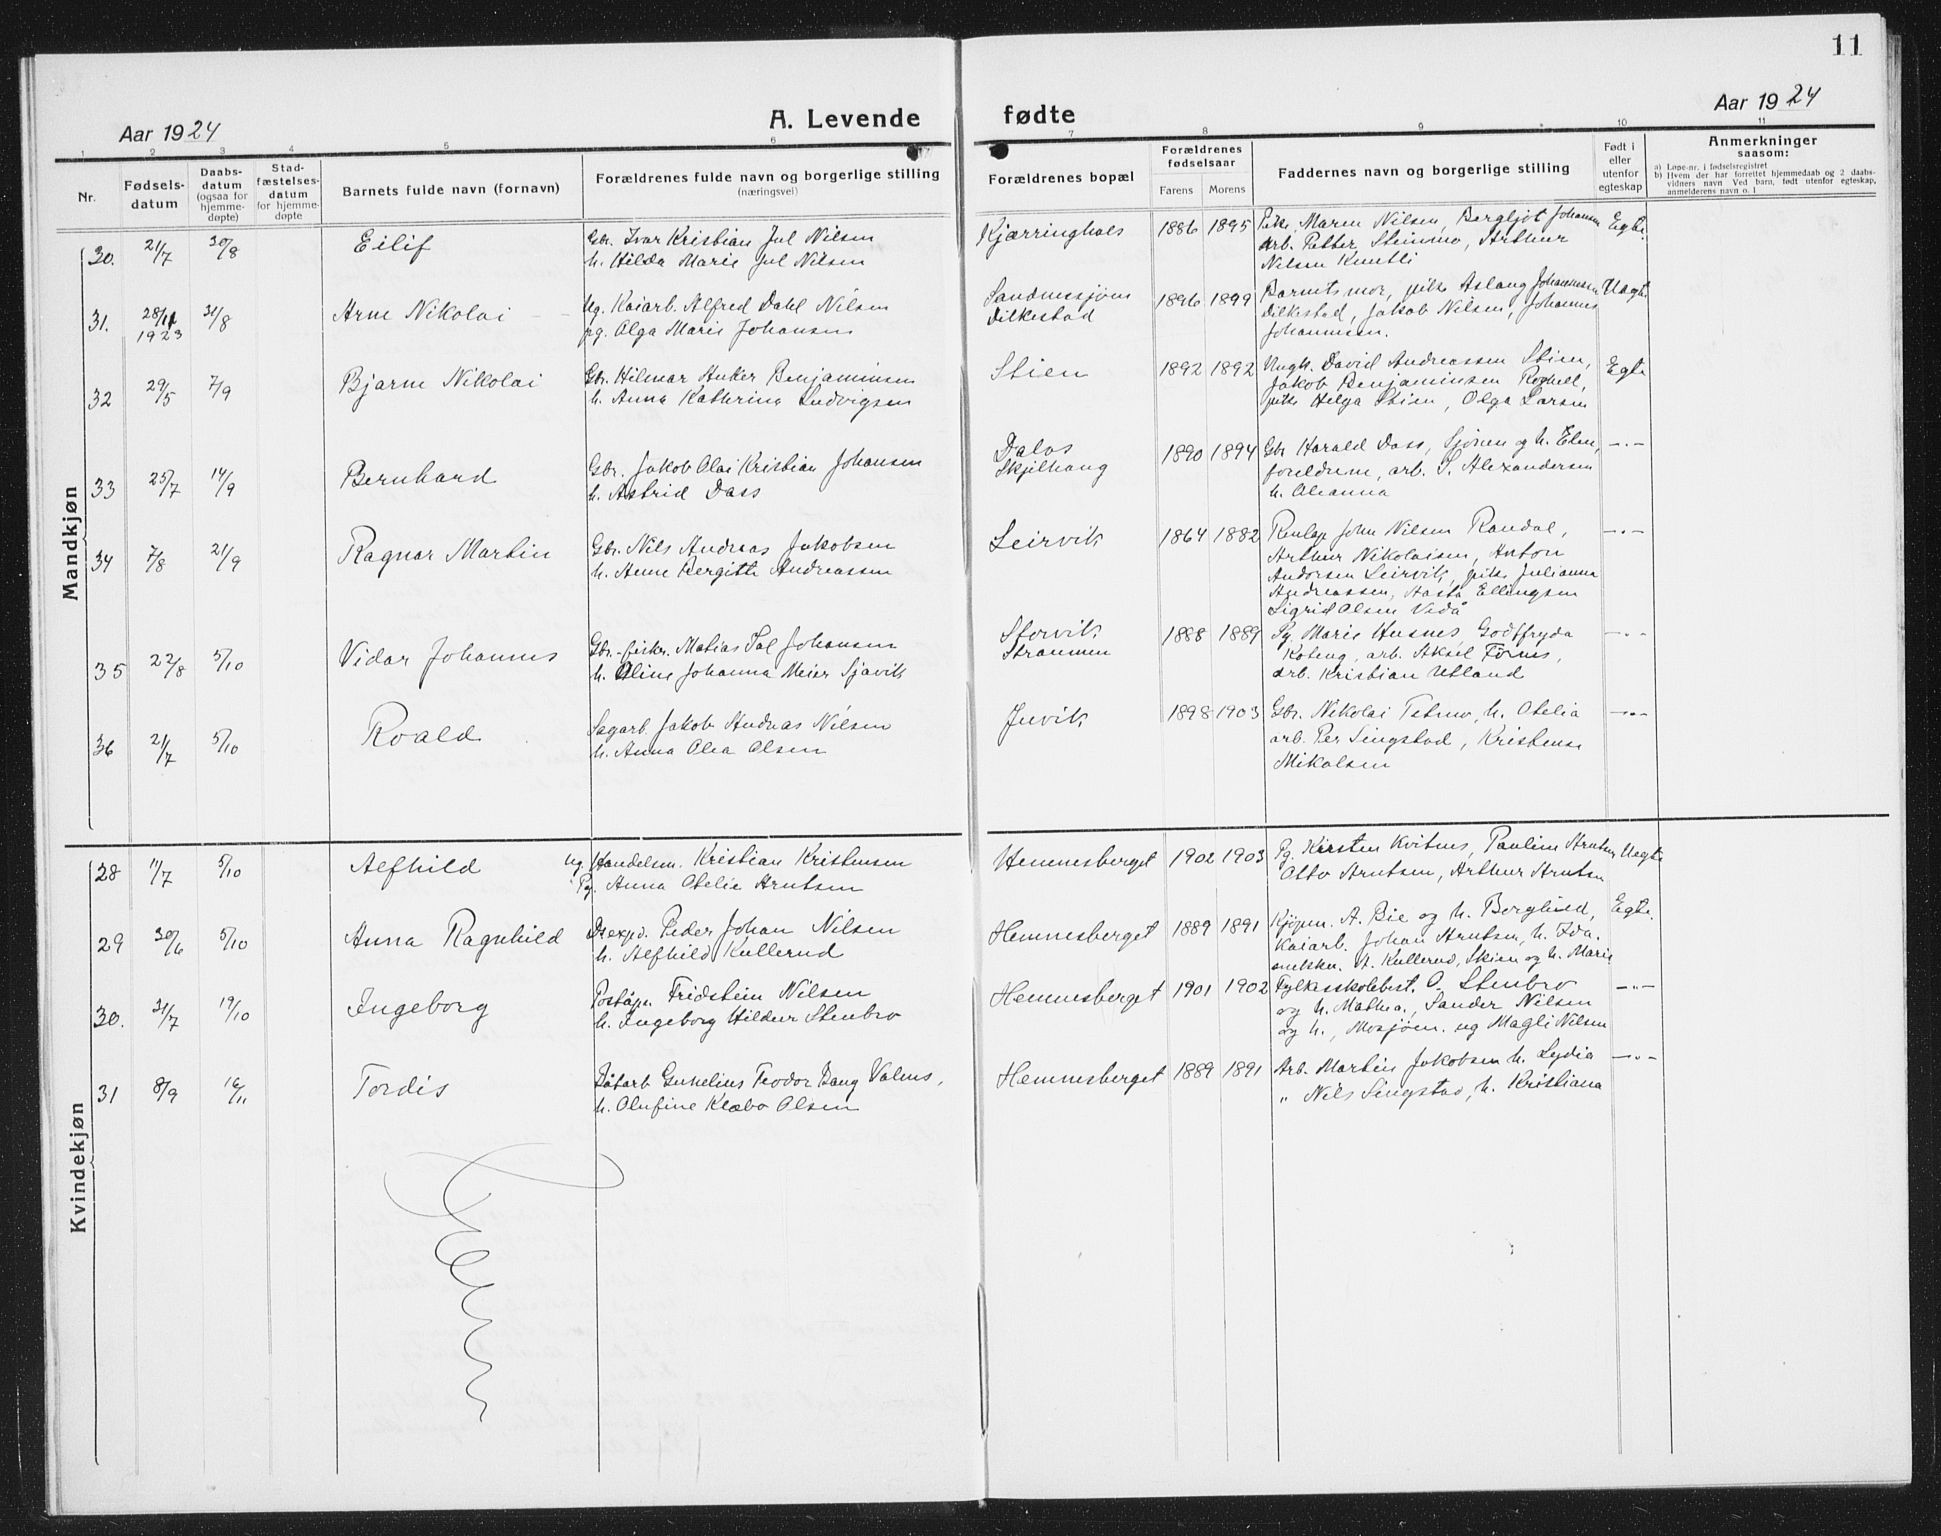 11
Aar 1924
A. Levende fødte
Aar 1924
1 2 3 4 5 6 7 8 9 10 11
Nr.
Fødsels-
datum
Daabs-
datum
(ogsaa for
hjemme-
døpte)
Stad-
fæstelses-
datum
for hjemme-
døpte
Barnets fulde navn (fornavn)
Forældrenes fulde navn og borgerlige stilling
(næringsvei)
Forældrenes bopæl
Forældrenes
fødselsaar
Farens Morens
Faddernes navn og borgerlige stilling
Født i
eller
utenfor
egteskap
Anmerkninger
saasom:
a) Løpe-nr. i fødselsregistret
b) Hvem der har forrettet hjemmedaab og 2 daabs-
vidners navn Ved barn, født utenfor egteskap,
anmelderens navn o. l
Mandkjøn
30. 21/7 30/8 Eilif
Gbr. Ivar Kristian Jul Nilsen
h. Hilda Marie Jul Nilsen
Kjærringhals 1886 1895
Pike Maren Nilsen, Bergljot Johansen
arb. Petter Steinmo, Arthur
Nilsen
Egte.
31. 28/11 1923 31/8 Arne Nikolai
Ug. Kaiarb. Alfred Dahl Nilsen
pg. Olga Marie Johansen
Sandnessjøen
Dilkestad
1896 1899
Barnets mor, pike Aslaug Johannessen
Dilkestad, Jakob Nilsen, Johannes
Johannesen.
Uegte
32 29/5 7/9 Bjarne Nikolai
Gbr. Hilmar Anker Benjaminsen
h. Anna Kathrina Ludvigsen
Stien 1892 1892
Ungk. David Andreassen Stien,
Jakob Benjaminsen
pike Helga Stien, Olga Larsen
Egte
33 25/7 14/9 Bernhard
Gbr. Jakob Olai Kristian Johansen
h. Astrid Dass
Dalos
Skjilhaug
1890 1894
Gbr Harald Dass, Sjonen og h. Elen,
foreldrene, arb. S. Alexandersen
h. Oleanna
—"—
34 7/8 21/9 Ragnar Martin
Gbr. Nils Andreas Jakobsen
h. Anne Bergitte Andreassen
Leirvik 1864 1882
John Nilsen Randal,
Arthur Nikolaisen, Anton
Andersen Leirvik, pike Julianna
Andreassen, Aasta Ellingsen
Sigrid Olsen
—"—
35 22/8 5/10 Vidar Johannes
Gbr.-fisker. Matias Johansen
h. Oline Johanna Meier Sjavik
Storvik
Straumen
1888 1889
Pg. Marie Husnes, Godtfryda
Koteng, arb. Aksel Fornes,
arb. Kristian Utland
—"—
36 21/7 5/10 Roald
Sagarb. Jakob Andreas Nilsen
h. Anna Olea Olsen
Juvik 1898 1903
Gbr. Nikolai h. Otelia
arb. Per Singstad, Kristense
Mikalsen
—"—
Kvindekjøn
28 11/7 5/10 Alfhild
Ug. Handelsm. Kristian Kristensen
Pg. Anna Otelie Arntsen
Hemnesberget 1902 1903
Pg. Kirsten Kvitnes, Pauline Arntsen
Otto Arntsen, Arthur Arntsen
Uegte
29 30/6 5/10 Anna Ragnhild
Peder Johan Nilsen
h. Alfhild Kullerud
Hemnesberget 1889 1891
Kjøpm. A. Bie og h. Borghild,
Kaiarb. Johan Arntsen, h. Ida.
A. Kullerud, Skien og h. Marie
Egte.
30. 31/7 19/10 Ingeborg
Postaapn. Fridstein Nilsen
h. Ingeborg Hildur Stenbro
Hemnesberget 1901 1902
Fylkesskolebest. O. Stenbro
og h. Mathea, Sander Nilsen
og h., Mosjøen. ug Magli Nilsen
—"—
31 8/9 16/11 Tordis
Båtarb Teodor Bang Valnes,
h. Olufine Klæbo Olsen
Hemnesberget 1889 1891
Arb. Martin Jakobsen h. Lydia
" Nils Singstad, h. Kristiana
—"—